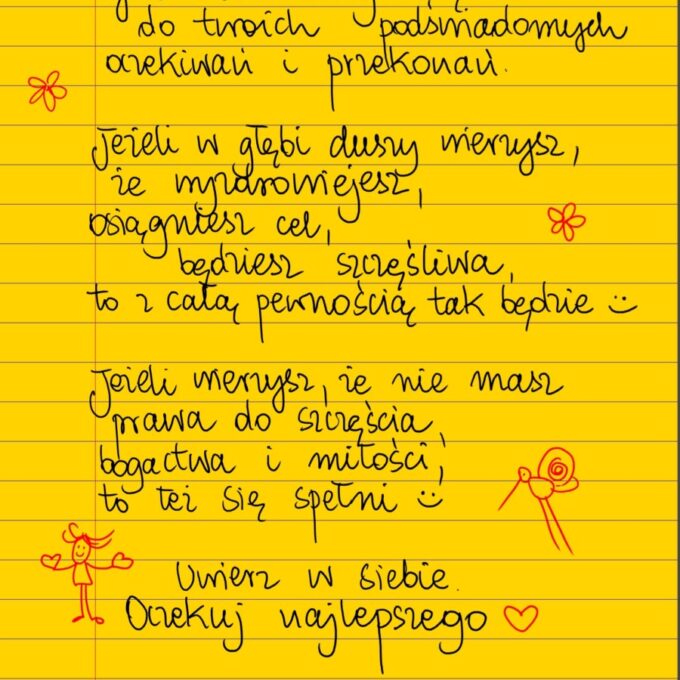 do twoich podświadomych
oczekiwań i przekonań.
Jeżeli w głębi duszy wierzysz,
że wyzdrowiejesz,
osiągniesz cel,
będziesz szczęśliwa,
to z całą pewnością tak będzie :)
Jeżeli wierzysz, że nie masz
prawa do szczęścia,
bogactwa i miłości,
to też się spełni :)
Uwierz w siebie.
Oczekuj najlepszego ♡